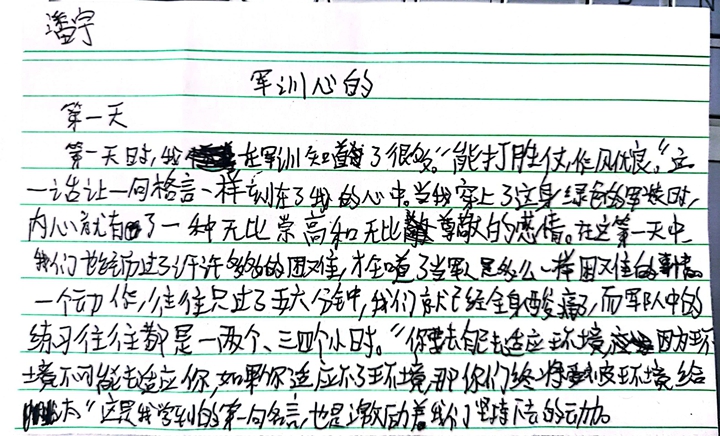 潘宇
军训心的
第一天
第一天时,我在军训知道了很多。“能打胜仗,作风优良。”这
一话让一句格言一样刻在了我的心中。当我穿上了这身绿色的军装时,
内心就有了一种无比崇高和无比尊敬的感情。在这第一天中
我们也经历过了许许多多的困难,才知道了当军人是多么一样困难的事情。
一个动作,往往只过了五六分钟,我们就已经全身酸痛,而军队中的
练习往往都是一两个、三四个小时。“你要去自己去适应环境,因为环
境不可能去适应你,如果你适应不了环境,那你们终将被环境给
”这是我学到的第一句名言,也是激励着我们坚持下去的动力。